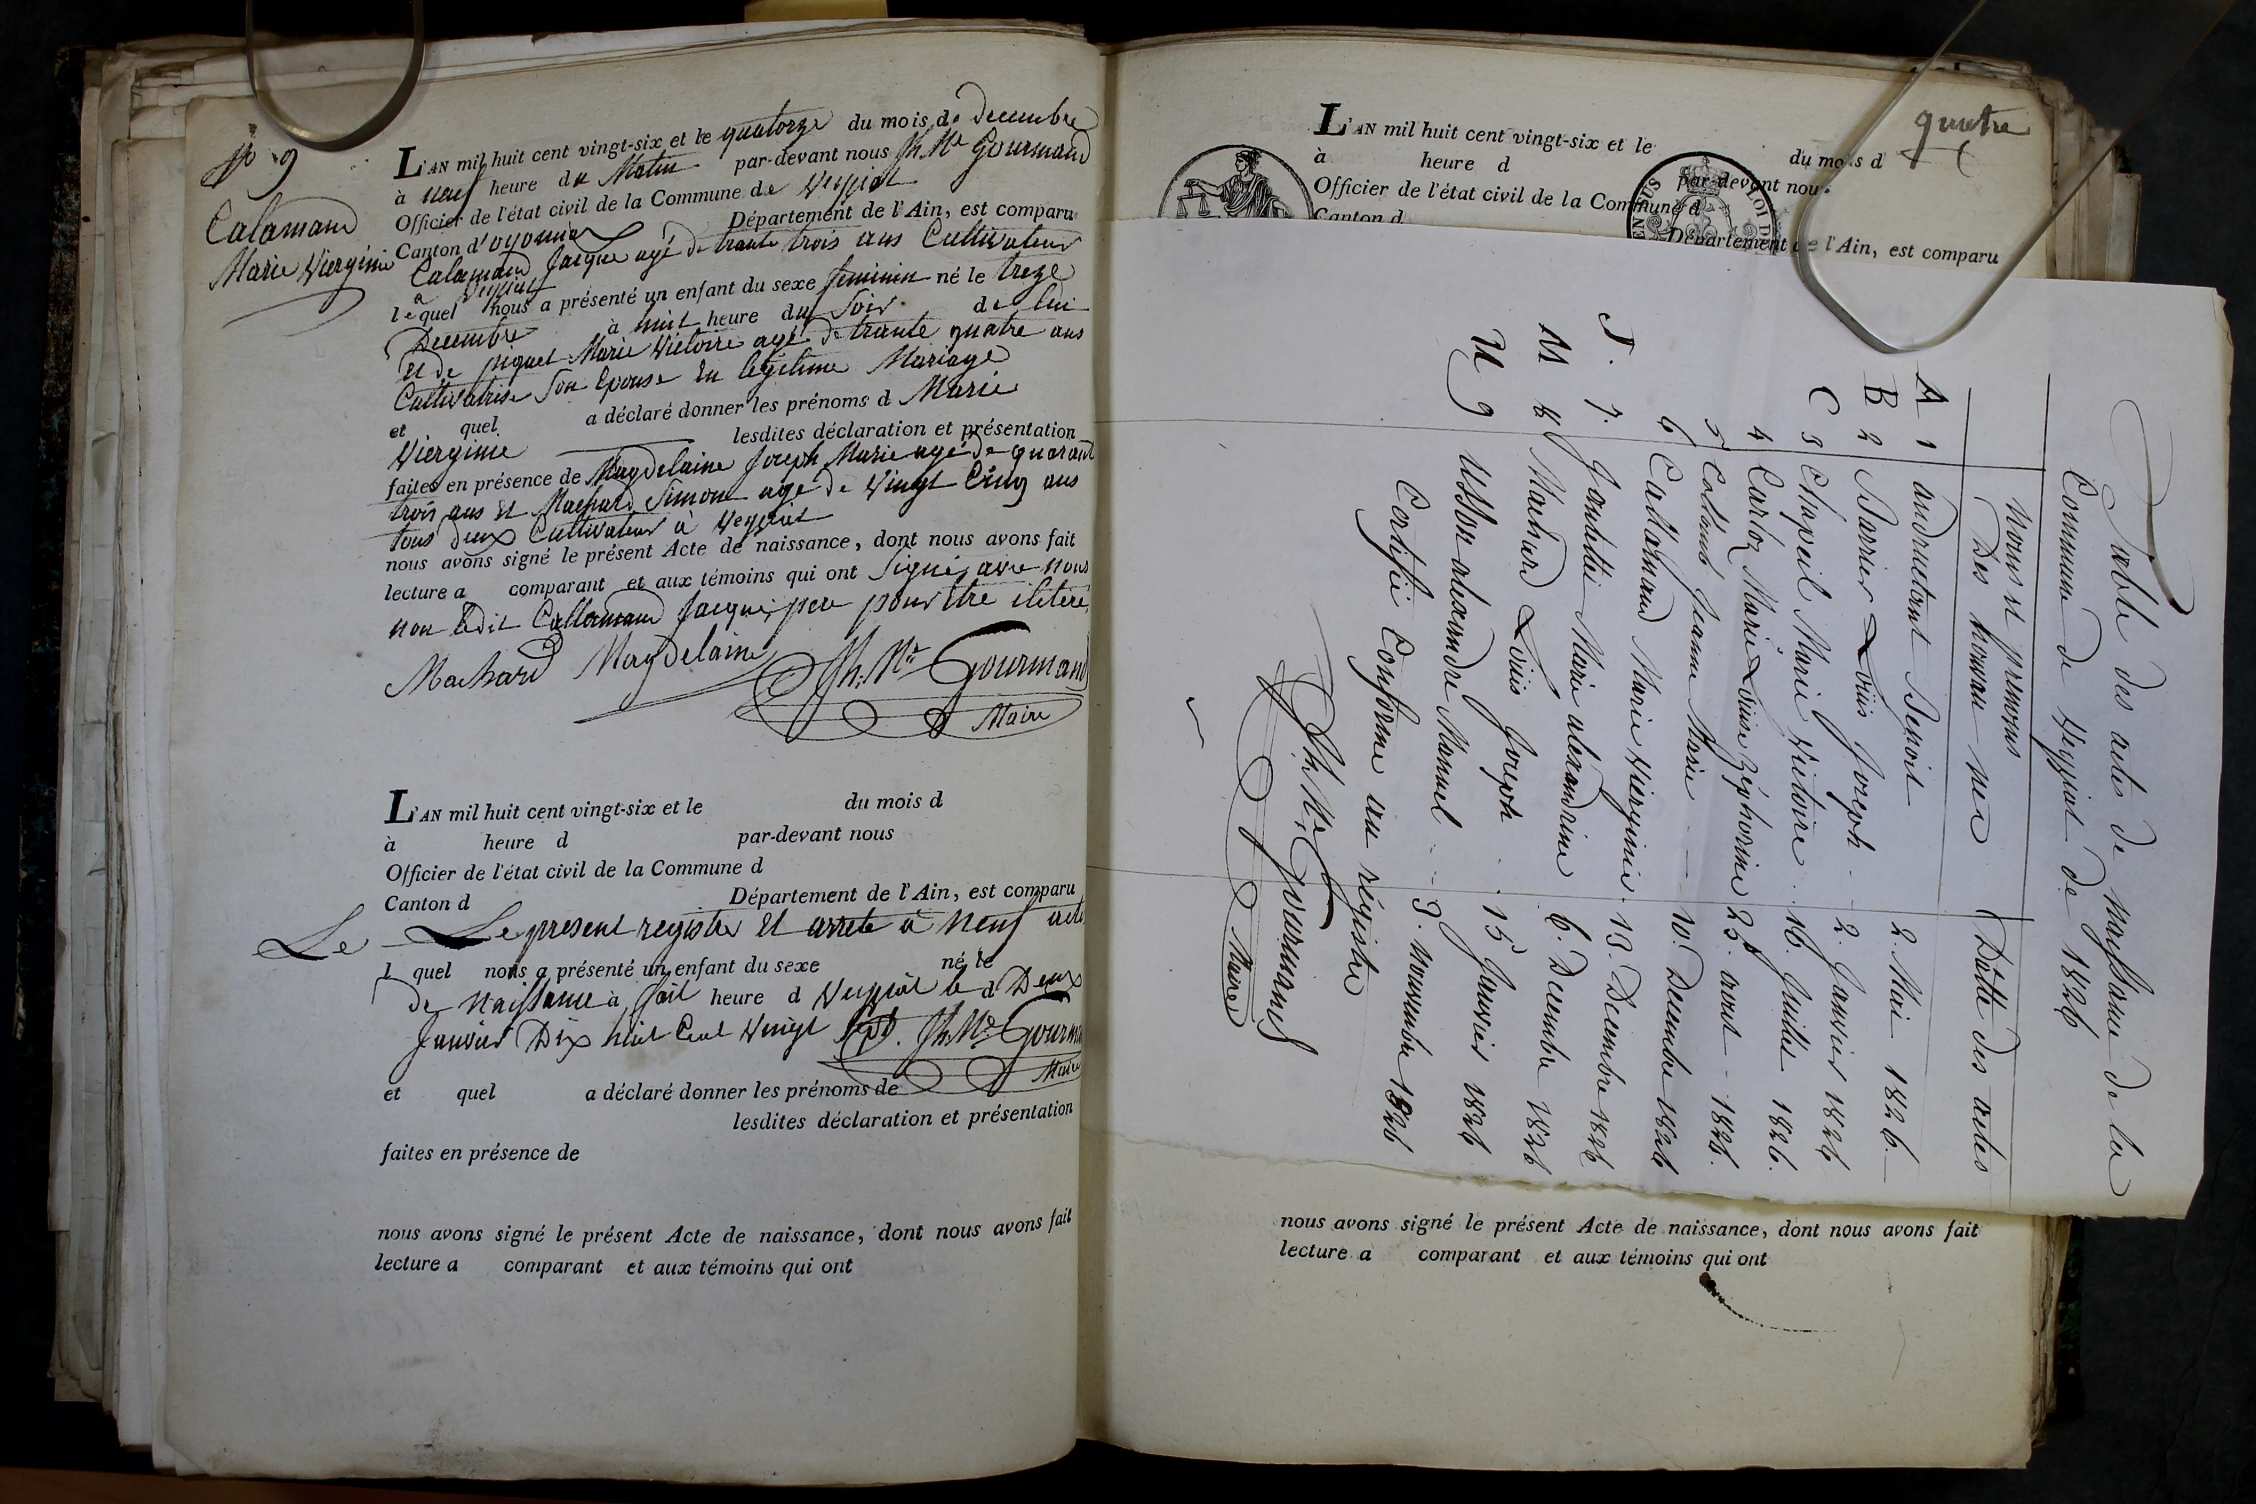 No 9
Calamand
Marie Vierginie
L'AN mil huit cent vingt-six et le quatorze du mois de decembre
à neuf heure du Matin par-devant nous Jh. Me Gourmand
Officier de l'état civil de la Commune de Veyziat
Canton d'oyonnax Département de l'Ain, est comparu
Calamand Jacque agé de trante trois ans Cultivateur
a Veyziat
lequel nous a présenté un enfant du sexe feminin né le treze
Decembre à huit heure du Soir de lui
Et de piquet Marie Victoire agé de trante quatre ans
Cultivatrise Son Epouse En légitime Mariage
et quel a déclaré donner les prénoms d Marie
Vierginie lesdites déclaration et présentation
faites en présence de Magdelaine Joseph Marie agé de quarant
trois ans Et Machard Simon agé de Vingt Cinq ans
tous deux Cultivateur à Veyziat
nous avons signé le présent Acte de naissance, dont nous avons fait
lecture a comparant et aux témoins qui ont Signés avec nous
non ledit Callamand Jacque, pere pour être ilitéré
Machard Magdelaine Jh. Me Gourmand
Maire
L'AN mil huit cent vingt-six et le du mois d
à heure d par-devant nous
Officier de l'état civil de la Commune d
Canton d Département de l'Ain, est comparu
Le Le present registre Et arreté à Neuf acte
l quel nous a présenté un enfant du sexe né le
de Naissance à fait heure d Veyziat le d Deux
Janvier Dix huit Cent Vingt Sept. Jh. Me Gourmand
Maire
et quel a déclaré donner les prénoms de
lesdites déclaration et présentation
faites en présence de
nous avons signé le présent Acte de naissance, dont nous avons fait
lecture a comparant et aux témoins qui ont
quatre
L'AN mil huit cent vingt-six et le du mois d
à heure d par-devant nous
Officier de l'état civil de la Commune d
Canton d Département de l'Ain, est comparu
Table des acte de naissance de la
Commune de Veyziat de 1826
Noms et prenoms
Des nouvau née Datte des actes
A 1 andruetant Benoit 2. Mai 1826.
B 2 Barrier Louis Joseph 2. Janvier 1826
C 3 Chapeil Marie Victoire 16. Juillet 1826.
4 Carloz Marie Louise Zéphorine 25. aout 1826.
5 Colland Jeanne Marie 10. Decembre 1826
6 Callamand Marie Vierginie 13. Decembre 1826
J. 7. Jantettie Marie alexandrine 6. Decembre 1826
M 8 Machard Louis Joseph 15 Janvier 1826
U 9 Usson alexandre Manuel 9. Novembre 1826
Certifié Conforme au régistre
Jh. Me Gourmand
Maire
nous avons signé le présent Acte de naissance, dont nous avons fait
lecture a comparant et aux témoins qui ont